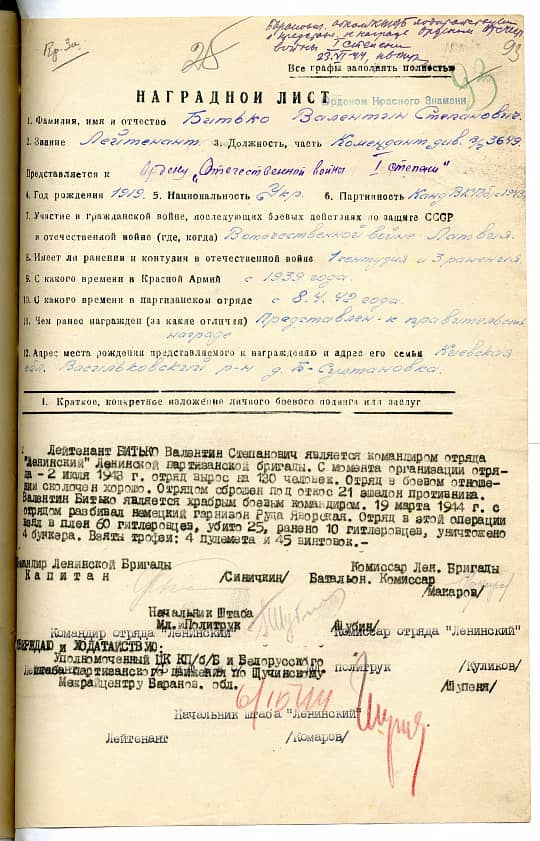 Вр. 3а.
25
93
23.VI 44,
Все графы заполнять полностью
93
НАГРАДНОЙ ЛИСТ
Орденом Красного Знамени
1. Фамилия, имя и отчество Битько Валентин Степанович.
2. Звание Лейтенант. 3. Должность, часть Комендант див. 3649.
Представляется к Ордену „Отечественной войны I степени"
4. Год рождения 1919. 5. Национальность Укр. 6. Партийность Канд. ВКП(б) с 1943
7. Участие в гражданской войне, последующих боевых действиях по защите СССР
и отечественной войне (где, когда) В отечественной войне Латвия.
8. Имеет ли ранении и контузия в отечественной войне 1 контузия и 3 ранения.
9. С какого времени в Красной Армий с 1939 года.
10. С какого времени в партизанском отряде с 8.4.42 года.
11. Чем ранее награжден (за какие отличия) Представлен к правительств.
награде
12. Адрес места рождения представляемого к награждению и адрес его семьи Киевская
обл. Васильковский р-н д. Б-Султановка.
1. Краткое, конкретное изложение личного боевого подвига или заслуг
Лейтенант БИТЬКО Валентин Степанович является командиром отряда
"Ленинский" Ленинской партизанской бригады. С момента организации отря-
да - 2 июля 1943 г. отряд вырос на 130 человек. Отряд в боевом отноше-
нии сколочен хорошо. Отрядом сброшен под откос 21 эшелон противника.
Валентин Битько является храбрым боевым командиром. 19 марта 1944 г. с
отрядом разбивал немецкий гарнизон Руда Яворская. Отряд в этой операции
взял в плен 60 гитлеровцев, убито 25, ранено 10 гитлеровцев, уничтожено
4 бункера. Взяты трофеи: 4 пулемета и 45 винтовок.-
Командир Ленинской Бригады Комиссар Лен. Бригады
Капитан /Синичкин/ Батальон. Комиссар
/Макаров/
Начальник Штаба
Мл. Политрук /Шубин/
Командир отряда "Ленинский" Комиссар отряда "Ленинский"
УТВЕРЖДАЮ и ХОДАТАЙСТВУЮ:
Уполномоченный ЦК КП/б/Б и Белорусского
политрук /Куликов/
Штаба партизанского движения по Щучинскому
Межрайцентру Баранов. обл. /Шупеня/
6/10 44
Начальник штаба "Ленинский"
Лейтенант /Комаров/